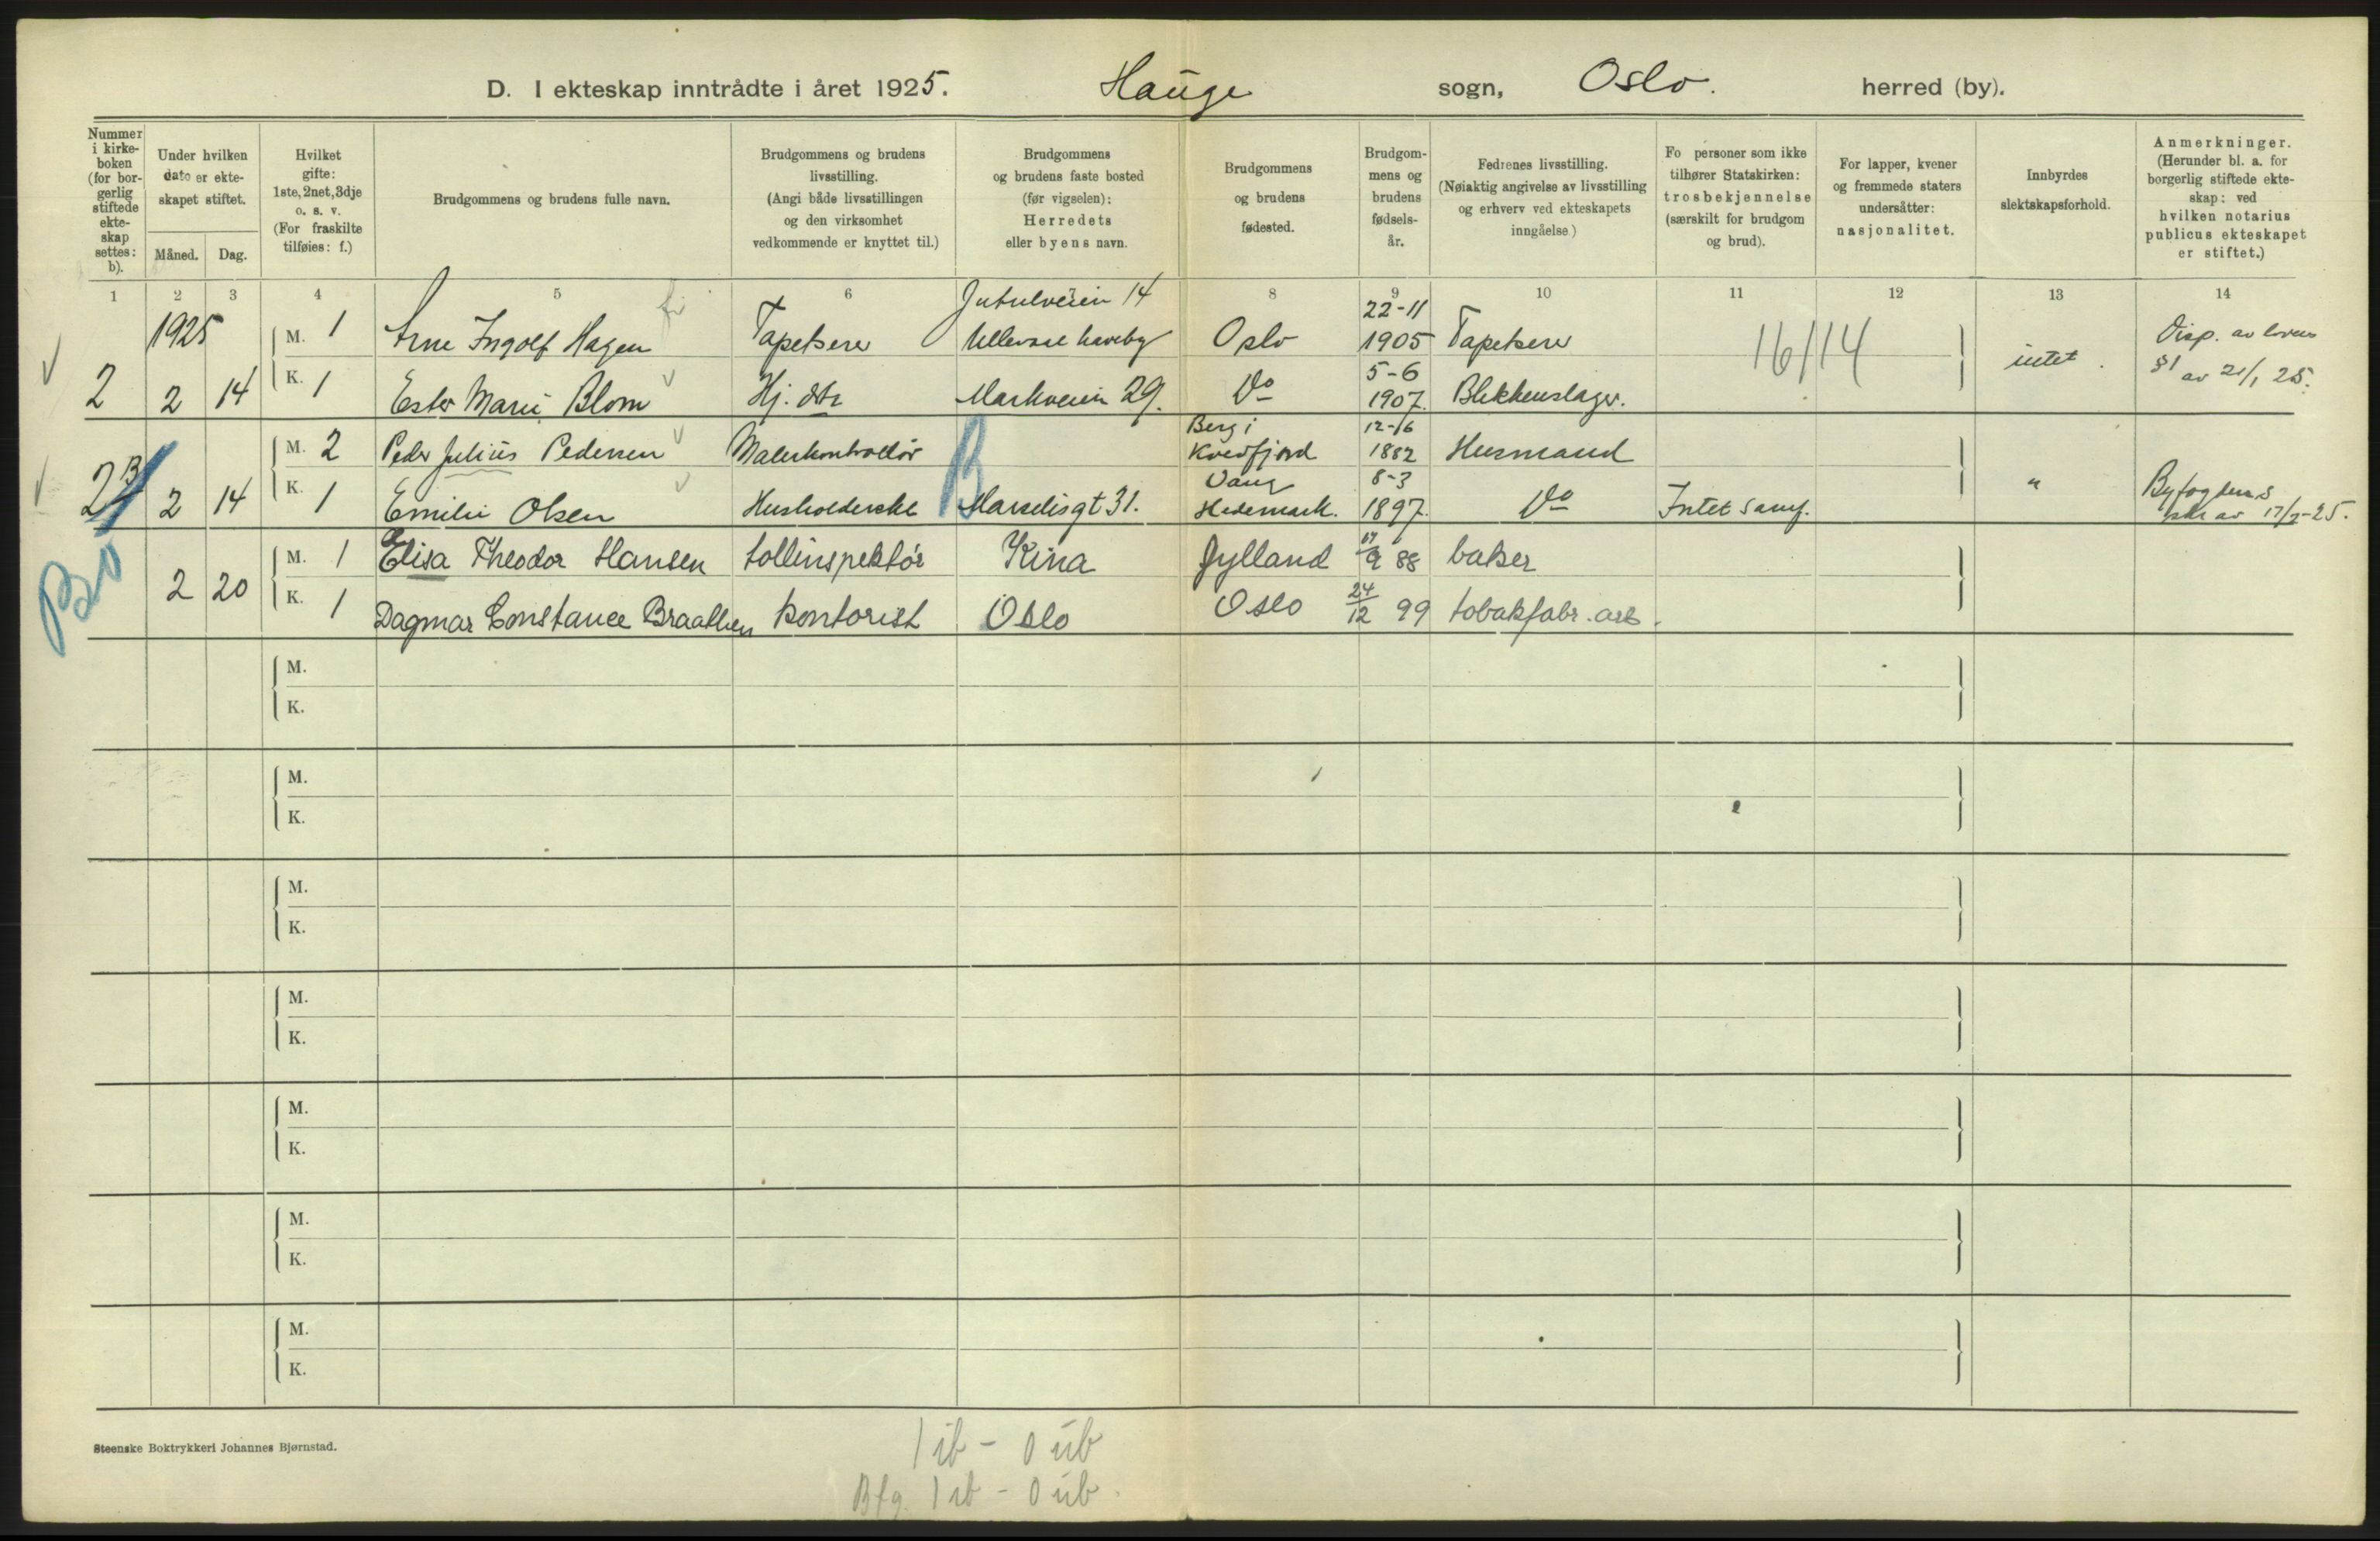 D. I ekteskap inntrådte i året 1925. Hauge sogn, Oslo. herred (by).
Nummer i kirkeboken (for borgerlig stiftede ekteskap settes: b).
Under hvilken dato er ekteskapet stiftet.
Måned. Dag.
Hvilket gifte: 1ste, 2net, 3dje o. s. v. (For fraskilte tilføies: f.)
Brudgommens og brudens fulle navn.
Brudgommens og brudens livsstilling. (Angi både livsstillingen og den virksomhet vedkommende er knyttet til.)
Brudgommens og brudens faste bosted (før vigselen): Herredets eller byens navn.
Brudgommens og brudens fødested.
Brudgommens og brudens fødselsår.
Fedrenes livsstilling. (Nøiaktig angivelse av livsstilling og erhverv ved ekteskapets inngåelse)
Fo personer som ikke tilhører Statskirken: trosbekjennelse (særskilt for brudgom og brud).
For lapper, kvener og fremmede staters undersåtter: nasjonalitet.
Innbyrdes slektskapsforhold.
Anmerkninger. (Herunder bl. a. for borgerlig stiftede ekteskap: ved hvilken notarius publicus ekteskapet er stiftet.)
1 2 3 4 5 6 8 9 10 11 12 13 14
1925 M. 1 Arne Ingolf Hagen Tapetserer Jutulveien 14 Ullevaal haveby Oslo 22-11 1905 Tapetserer 16/14 intet. Disp. av lovens §1 av 21/1 25.
2 2 14 K. 1 Ester Marie Blom Hj. dtr Markveien 29. Do 5-6 1907. Blikkenslager.
M. 2 Peder Julius Pedersen Malerkontrollør Berg i Kvedfjord 12-/6 1882 Husmand
2B 2 14 K. 1 Emilie Olsen Husholderske B Marselisgt 31. Vang Hedemark. 8-3 1897. Do Intet samf. " Byfogdens skr av 17/2-25.
M. 1 Elisa Theodor Hansen tollinspektør Kina Jylland 17/9 88 baker
2 20 K. 1 Dagmar Constance Braathen kontorist Oslo Oslo 24/12 99 tobakfabr. arb.
M.
K.
M.
K.
M.
K.
M.
K.
M.
K.
M.
K.
M.
K.
Steenske Boktrykkeri Johannes Bjørnstad.
1 ib - 0 üb
Bfg. 1 ib - 0 üb.